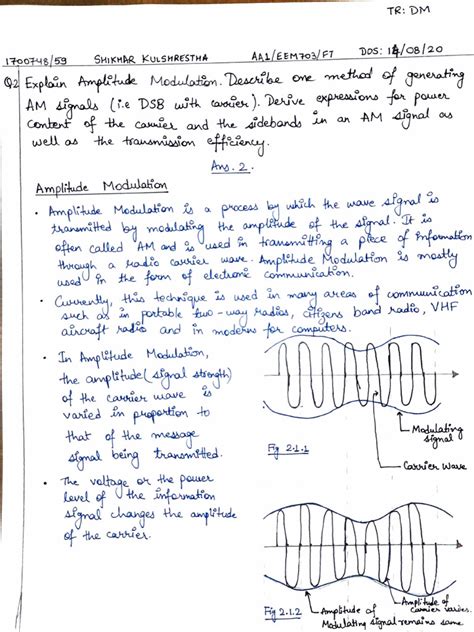 TR: DM
1700748/59 SHIKHAR KULSHRESTHA AA1/EEM703/F7 DOS: 14/08/20
Q2 Explain Amplitude Modulation. Describe one method of generating
AM signals (i.e DSB with carrier). Derive expressions for power
content of the carrier and the sidebands in an AM signal as
well as the transmission efficiency.
Ans. 2.
Amplitude Modulation
• Amplitude Modulation is a process by which the wave signal is
transmitted by modulating the amplitude of the signal. It is
often called AM and is used in transmitting a piece of information
through a radio carrier wave. Amplitude Modulation is mostly
used in the form of electronic communication.
• Currently, this technique is used in many areas of communication
such as in portable two-way radios, citizens band radio, VHF
aircraft radio and in modems for computers.
• In Amplitude Modulation,
the amplitude (signal strength)
of the carrier wave is
varied in proportion to
that of the message
signal being transmitted.
Modulating
signal
Fig 2.1.1
Carrier wave
• The voltage or the power
level of the information
signal changes the amplitude
of the carrier.
Amplitude of
carrier varies.
Fig 2.1.2
Amplitude of
Modulating signal remains same